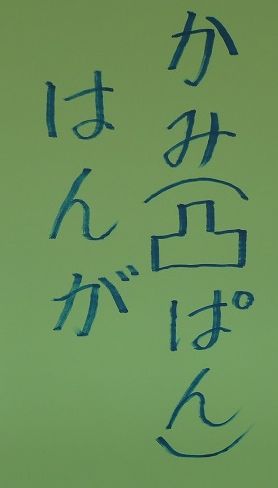 かみ(凸ぱん)
はんが